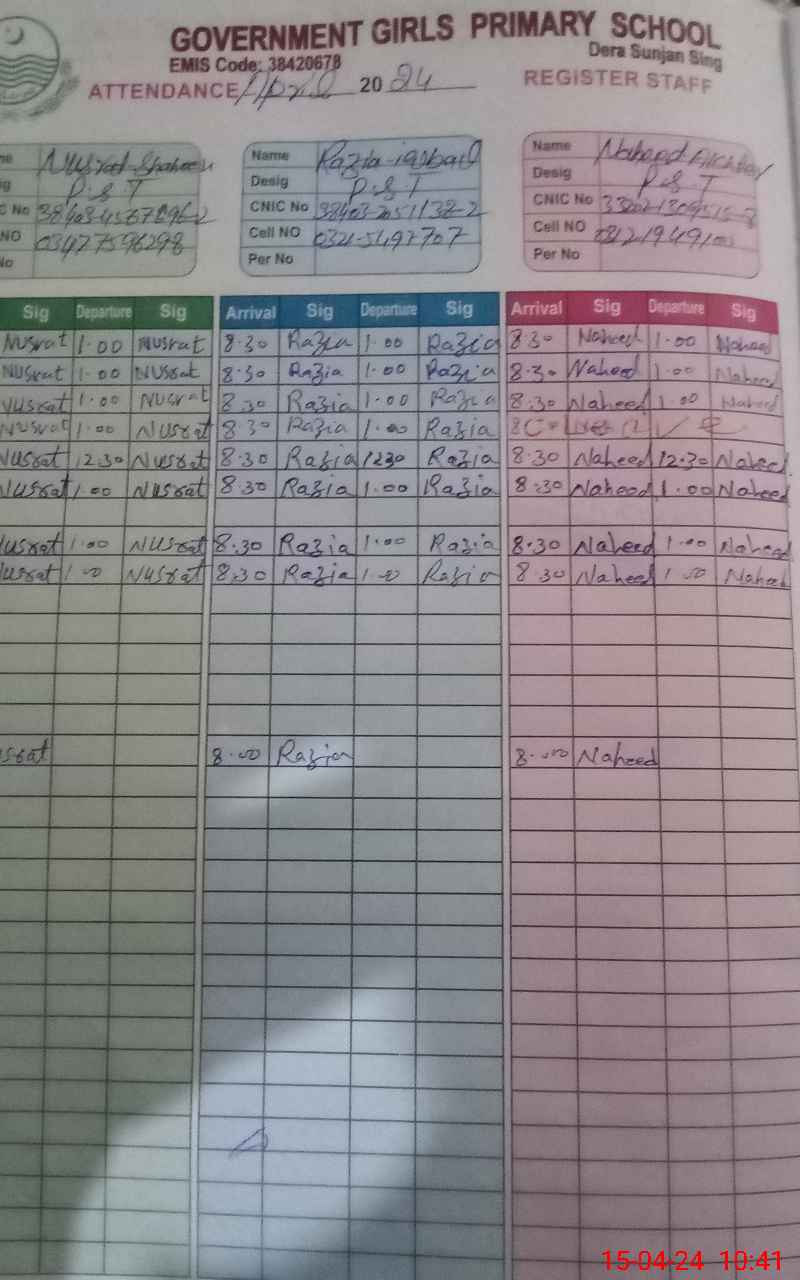 GOVERNMENT GIRLS PRIMARY SCHOOL
EMIS Code: 38420678 Dera Sunjan Sing
ATTENDANCE April 2024 REGISTER STAFF
Nusrat Shaheen
P.S.T
Name Razia
Desig P.S.T
CNIC No
Cell NO
Per No
Name Naheed
Desig P.S.T
CNIC No
Cell NO
Per No
Sig Departure Sig Arrival Sig Departure Sig Arrival Sig Departure Sig
Nusrat 1.00 Nusrat 8.30 Razia 1.00 Razia 8.30 Naheed 1.00 Naheed
Nusrat 1.00 Nusrat 8.30 Razia 1.00 Razia 8.30 Naheed 1.00 Naheed
Nusrat 1.00 Nusrat 8.30 Razia 1.00 Razia 8.30 Naheed 1.00 Naheed
Nusrat 1.00 Nusrat 8.30 Razia 1.00 Razia
Nusrat 12.30 Nusrat 8.30 Razia 1230 Razia 8.30 Naheed 12.30 Naheed
Nusrat 1.00 Nusrat 8.30 Razia 1.00 Razia 8.30 Naheed 1.00 Naheed
Nusrat 1.00 Nusrat 8.30 Razia 1.00 Razia 8.30 Naheed 1.00 Naheed
Nusrat 1.00 Nusrat 8.30 Razia 1.00 Razia 8.30 Naheed 1.00 Naheed
8.00 Razia 8.00 Naheed
15-04-24 10:41